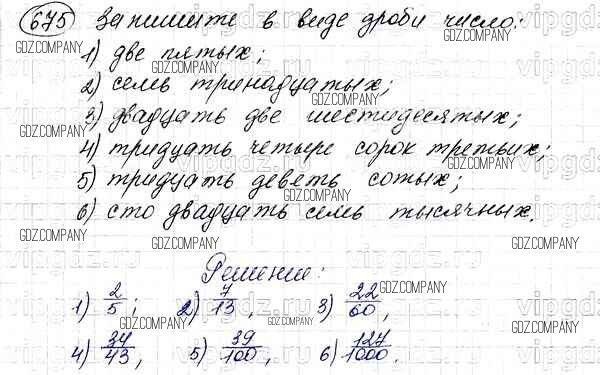 675 Запишите в виде дроби число:
1) две пятых;
2) семь тринадцатых;
3) двадцать две шестидесятых;
4) тридцать четыре сорок третьих;
5) тридцать деветь сотых;
6) сто двадцать семь тысячных.
Решение:
1) 2/5; 2) 7/13, 3) 22/60,
4) 34/43, 5) 39/100, 6) 127/1000.